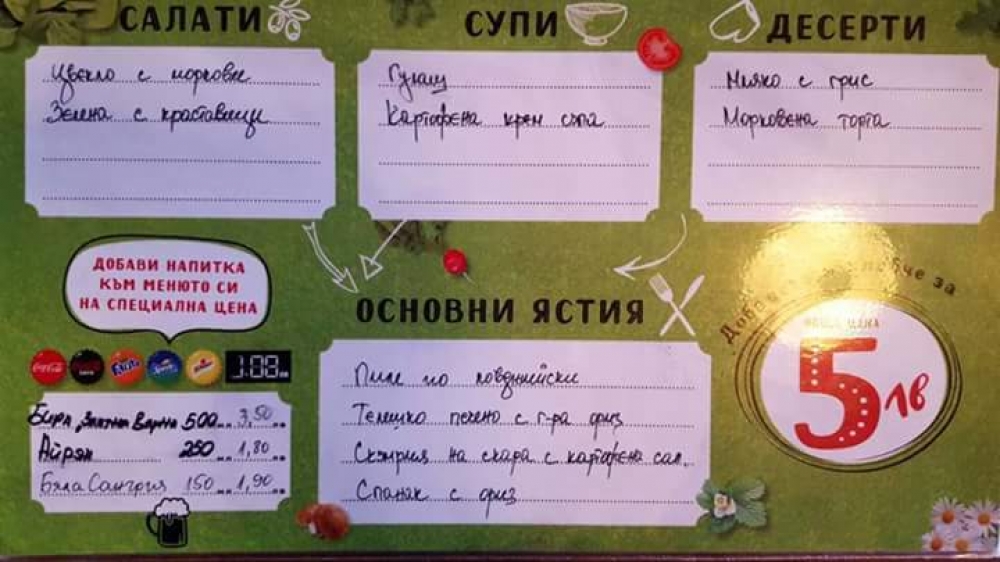 САЛАТИ
Цвекло с моркови
Зелена с краставици
СУПИ
Гулаш
Картофена крем супа
ДЕСЕРТИ
Мляко с грис
Морковена торта
ДОБАВИ НАПИТКА
КЪМ МЕНЮТО СИ
НА СПЕЦИАЛНА ЦЕНА
Coca-Cola
Fanta
Sprite
Бира Златна Варна 500 3,50
Айрян 250 1,80
Бяла Сангрия 150 1,90
ОСНОВНИ ЯСТИЯ
Пиле по ловджийски
Телешко печено с г-ра ориз
Скумрия на скара с картофена сал.
Спанак с ориз
за
ЦЕНА
5 лв